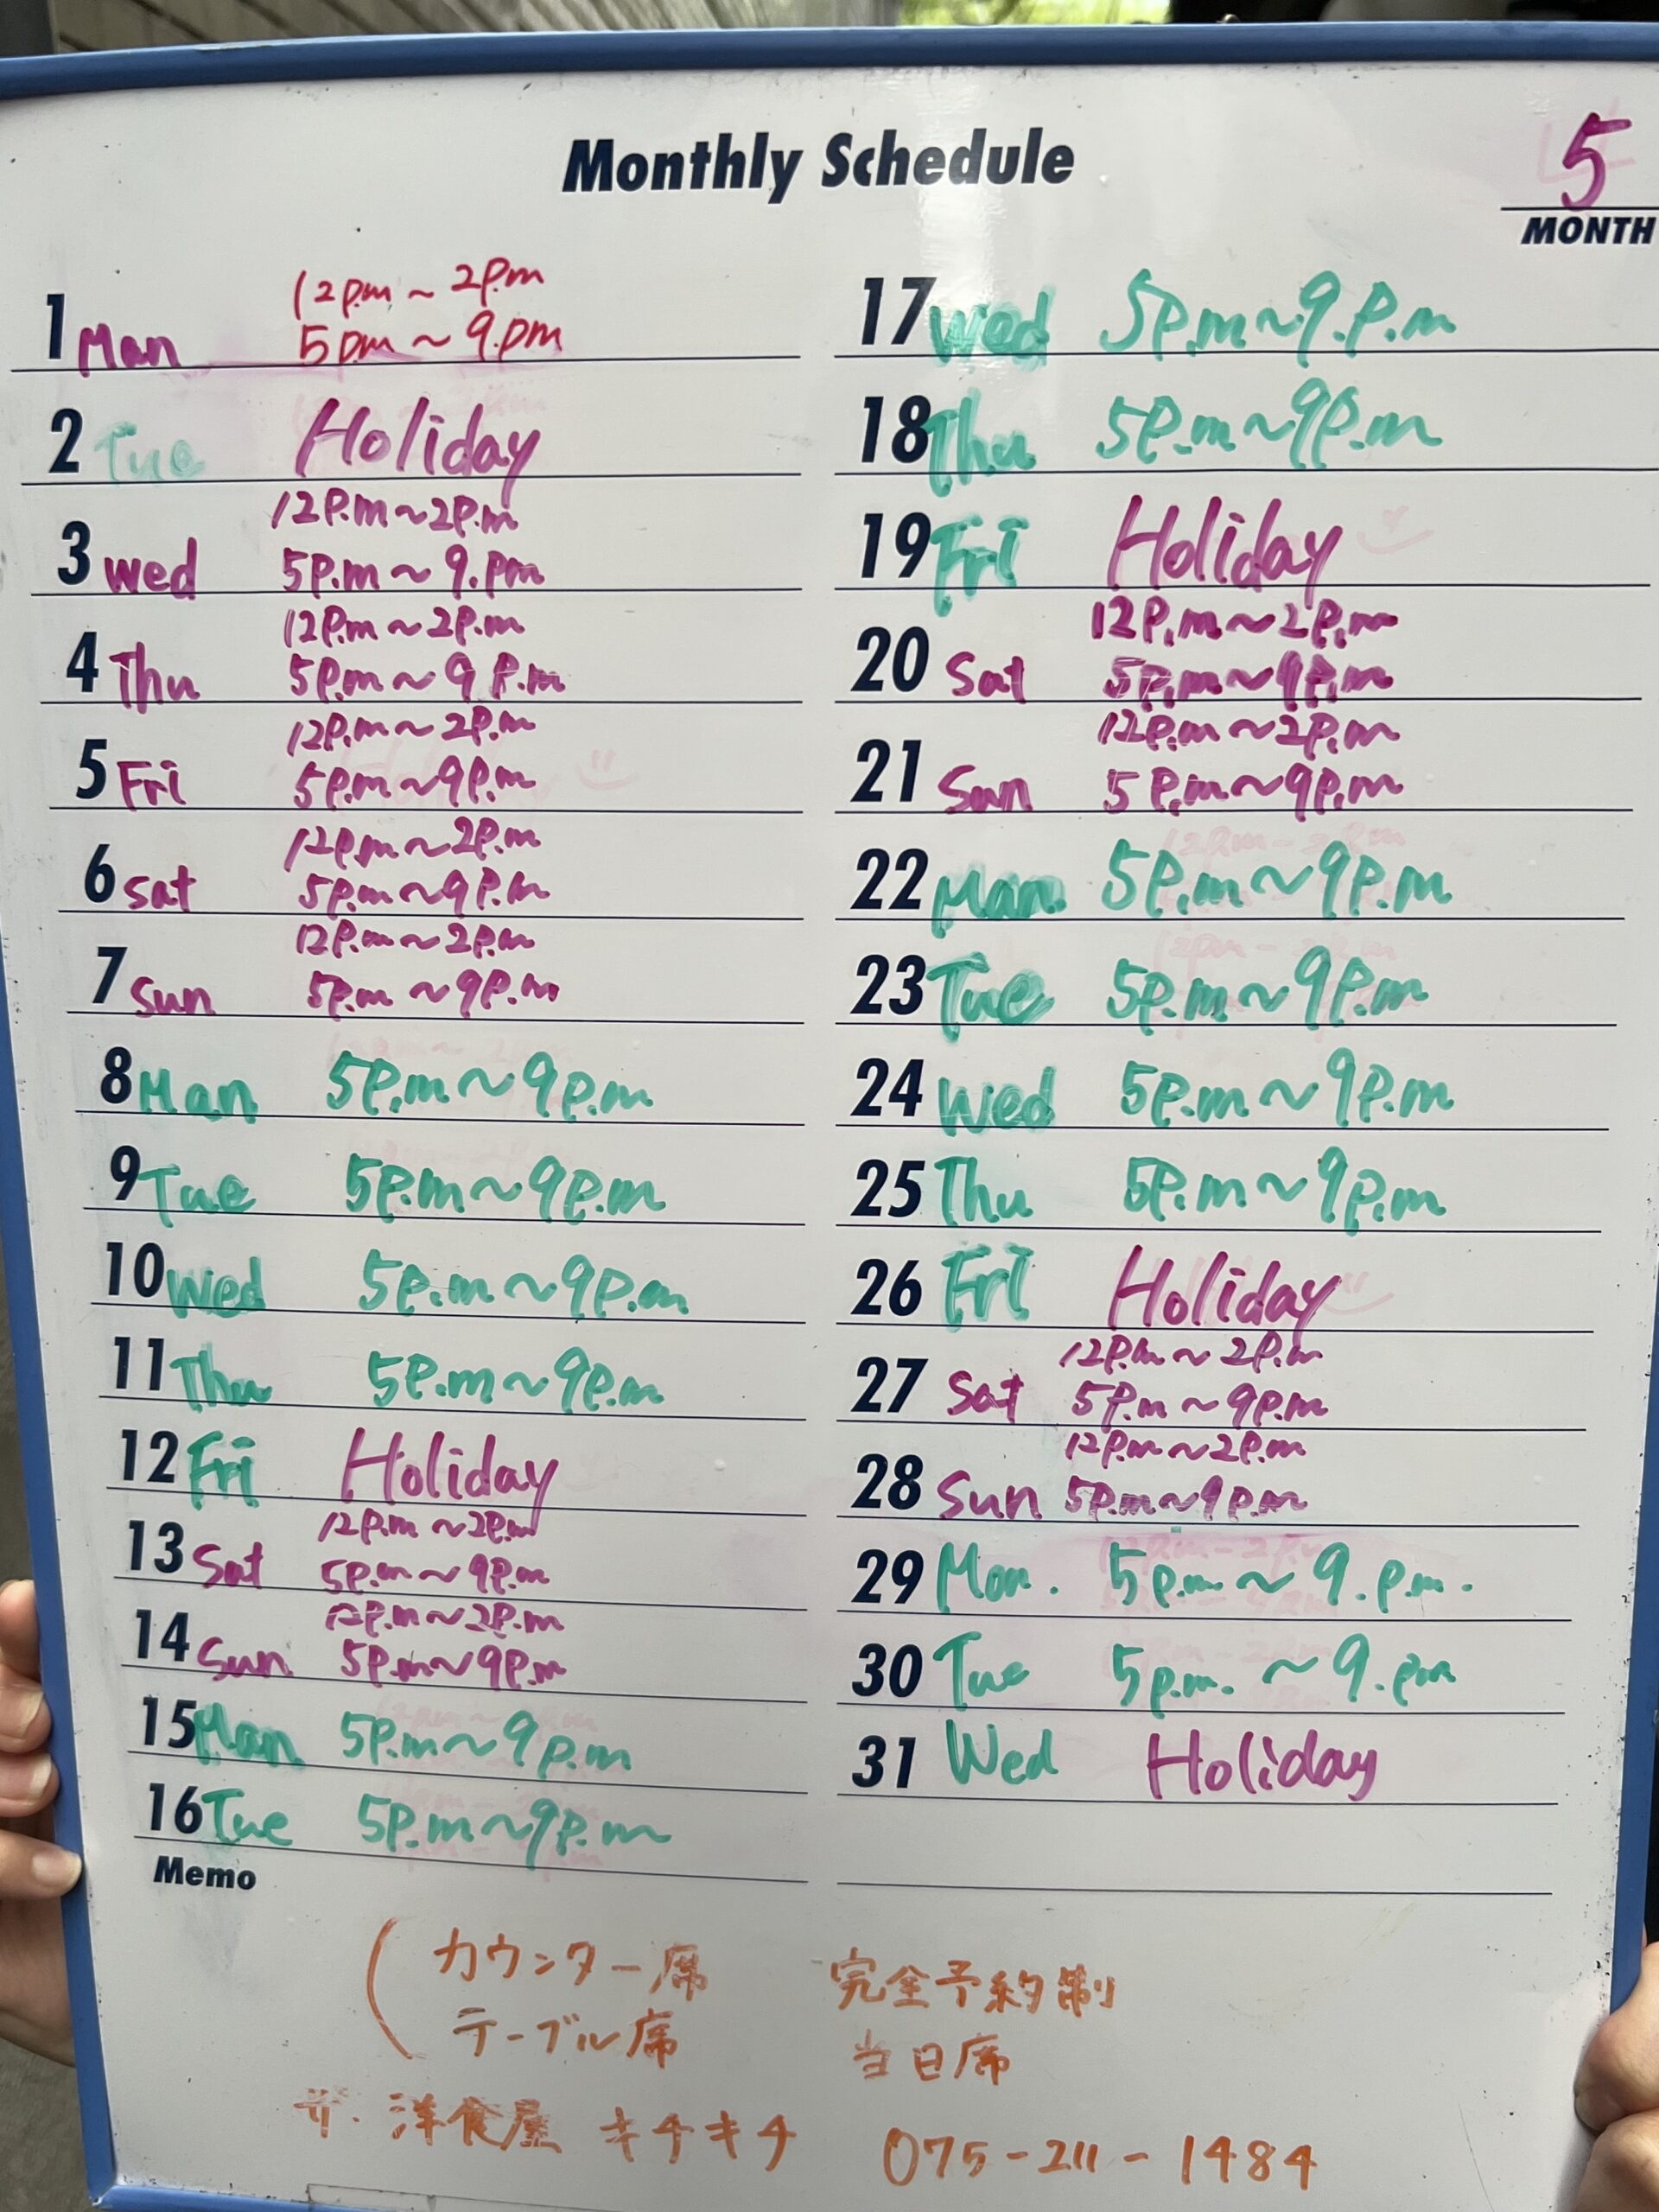 Monthly Schedule
5
MONTH
1 Man 12pm ~ 2pm
5pm ~ 9.pm
2 Tue Holiday
3 Wed 12P.m ~ 2P.m
5P.m ~ 9.pm
4 Thu 12P.m ~ 2P.m
5P.m ~ 9 P.m
5 Fri 12P.m ~ 2P.m
5P.m ~ 9P.m
6 Sat 12P.m ~ 2P.m
5P.m ~ 9P.m
7 Sun 12P.m ~ 2P.m
5P.m ~ 9P.m
8 Man 5P.m ~ 9P.m
9 Tue 5P.m ~ 9P.m
10 Wed 5P.m ~ 9P.m
11 Thu 5P.m ~ 9P.m
12 Fri Holiday
13 Sat 12P.m ~ 2P.m
5P.m ~ 9P.m
14 Sun 12P.m ~ 2P.m
5P.m ~ 9P.m
15 Man 5P.m ~ 9P.m
16 Tue 5P.m ~ 9P.m
17 Wed 5P.m ~ 9.P.m
18 Thu 5P.m ~ 9P.m
19 Fri Holiday
20 Sat 12P.m ~ 2P.m
5P.m ~ 9P.m
21 Sun 12P.m ~ 2P.m
5P.m ~ 9P.m
22 Man 5P.m ~ 9P.m
23 Tue 5P.m ~ 9P.m
24 Wed 5P.m ~ 9P.m
25 Thu 5P.m ~ 9P.m
26 Fri Holiday
27 Sat 12P.m ~ 2P.m
5P.m ~ 9P.m
28 Sun 12P.m ~ 2P.m
5P.m ~ 9P.m
29 Mon. 5p.m. ~ 9.p.m.
30 Tue 5p.m. ~ 9.pm
31 Wed Holiday
Memo
カウンター席 完全予約制
テーブル席 当日席
ザ・洋食屋 キチキチ 075-211-1484